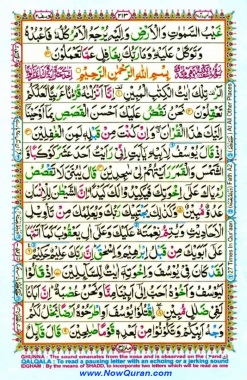 غَيْبُ السَّمٰوٰتِ وَالْاَرْضِ وَاِلَيْهِ يُرْجَعُ الْاَمْرُ كُلُّهٗ فَاعْبُدْهُ
وَتَوَكَّلْ عَلَيْهِ وَمَا رَبُّكَ بِغَافِلٍ عَمَّا تَعْمَلُوْنَ
بِسْمِ اللهِ الرَّحْمٰنِ الرَّحِيْمِ
الٓرٰ تِلْكَ اٰيٰتُ الْكِتٰبِ الْمُبِيْنِ اِنَّاۤ اَنْزَلْنٰهُ قُرْءٰنًا عَرَبِيًّا لَّعَلَّكُمْ
تَعْقِلُوْنَ نَحْنُ نَقُصُّ عَلَيْكَ اَحْسَنَ الْقَصَصِ بِمَاۤ اَوْحَيْنَاۤ
اِلَيْكَ هٰذَا الْقُرْاٰنَ وَاِنْ كُنْتَ مِنْ قَبْلِهٖ لَمِنَ الْغٰفِلِيْنَ
اِذْ قَالَ يُوْسُفُ لِاَبِيْهِ يٰۤاَبَتِ اِنِّيْ رَاَيْتُ اَحَدَ عَشَرَ كَوْكَبًا وَّ
الشَّمْسَ وَالْقَمَرَ رَاَيْتُهُمْ لِيْ سٰجِدِيْنَ قَالَ يٰبُنَيَّ لَا تَقْصُصْ
رُءْيَاكَ عَلٰۤى اِخْوَتِكَ فَيَكِيْدُوْا لَكَ كَيْدًا اِنَّ الشَّيْطٰنَ لِلْاِنْسَانِ
عَدُوٌّ مُّبِيْنٌ وَكَذٰلِكَ يَجْتَبِيْكَ رَبُّكَ وَيُعَلِّمُكَ مِنْ تَاْوِيْلِ
الْاَحَادِيْثِ وَيُتِمُّ نِعْمَتَهٗ عَلَيْكَ وَعَلٰۤى اٰلِ يَعْقُوْبَ كَمَاۤ اَتَمَّهَا
عَلٰۤى اَبَوَيْكَ مِنْ قَبْلُ اِبْرٰهِيْمَ وَاِسْحٰقَ اِنَّ رَبَّكَ عَلِيْمٌ حَكِيْمٌ
لَقَدْ كَانَ فِيْ يُوْسُفَ وَاِخْوَتِهٖۤ اٰيٰتٌ لِّلسَّآئِلِيْنَ اِذْ قَالُوْا
لَيُوْسُفُ وَاَخُوْهُ اَحَبُّ اِلٰۤى اَبِيْنَا مِنَّا وَنَحْنُ عُصْبَةٌ اِنَّ اَبَانَا
لَفِيْ ضَلٰلٍ مُّبِيْنٍ اقْتُلُوْا يُوْسُفَ اَوِ اطْرَحُوْهُ اَرْضًا يَّخْلُ لَكُمْ
وَجْهُ اَبِيْكُمْ وَتَكُوْنُوْا مِنْۢ بَعْدِهٖ قَوْمًا صٰلِحِيْنَ قَالَ قَآئِلٌ
GHUNNA : The sound emanates from the nose and is observed on the
QALQALA : To read a pausing letter with an echoing or a jerking sound
IDGHAM : By the means of SHADD, to incorporate two letters which will be read as one
www.NowQuran.com